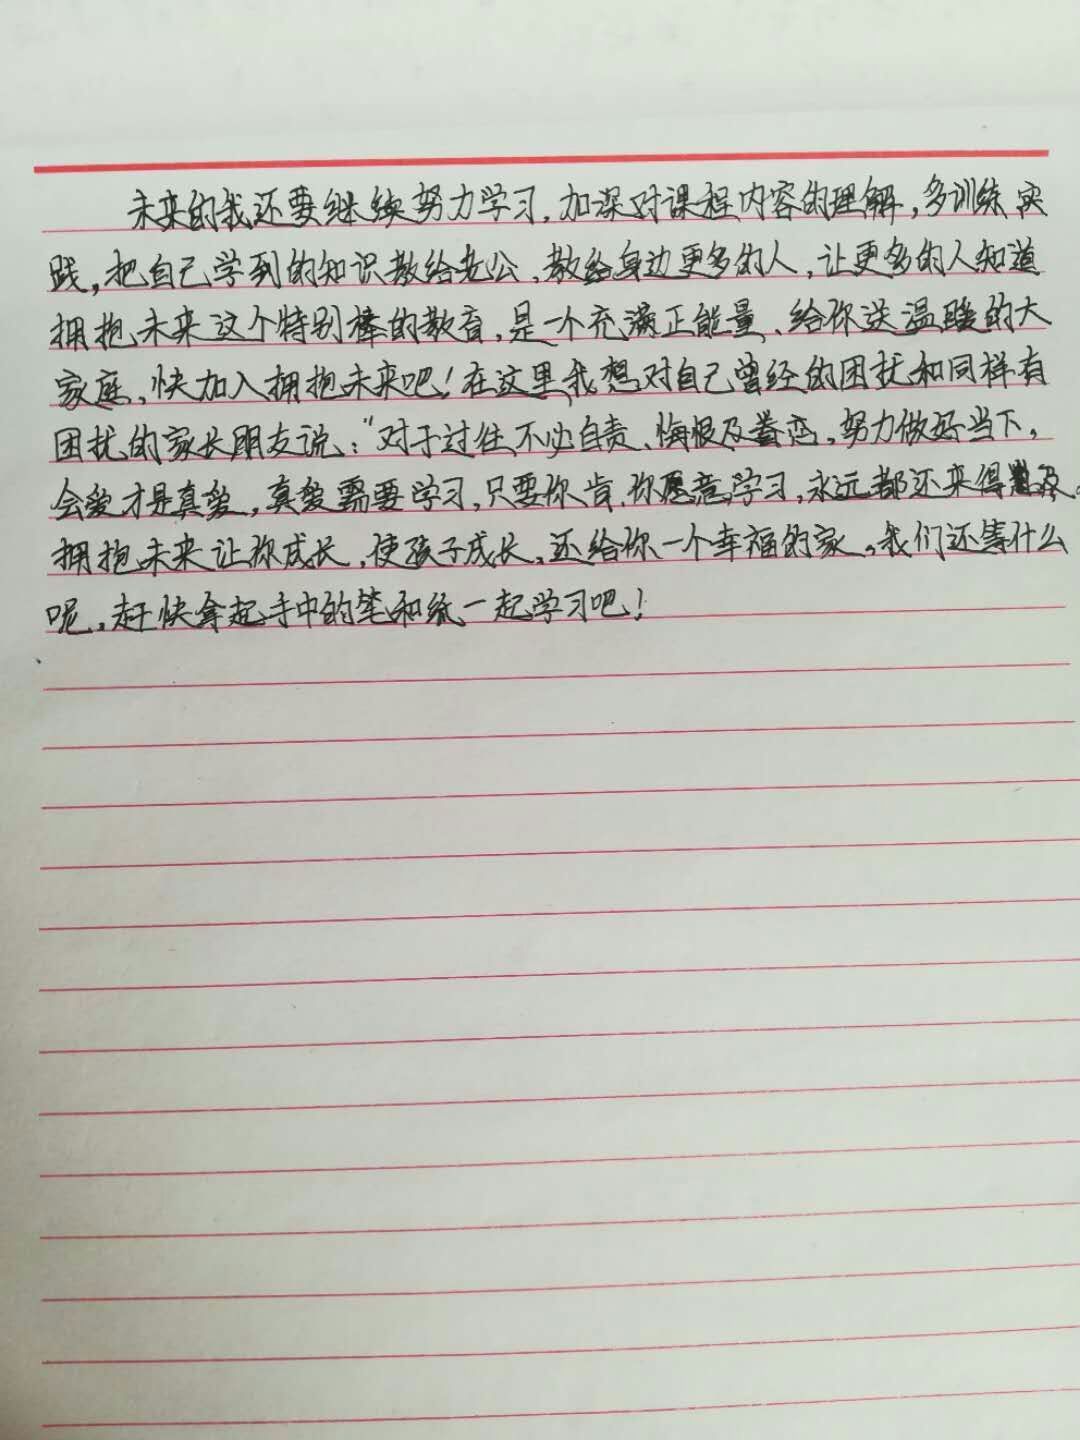 未来的我还要继续努力学习,加深对课程内容的理解,多训练实
践,把自己学到的知识教给老公、教给身边更多的人,让更多的人知道
拥抱未来这个特别棒的教育,是一个充满正能量、给你送温暖的大
家庭,快加入拥抱未来吧!在这里,我想对自己曾经的困扰和同样有
困扰的家长朋友说:“对于过往不必自责、悔恨及眷恋,努力做好当下,
会爱才是真爱,真爱需要学习,只要你肯、你愿意学习,永远都还来得及。
拥抱未来让你成长,使孩子成长,还给你一个幸福的家,我们还等什么
呢,赶快拿起手中的笔和纸一起学习吧!